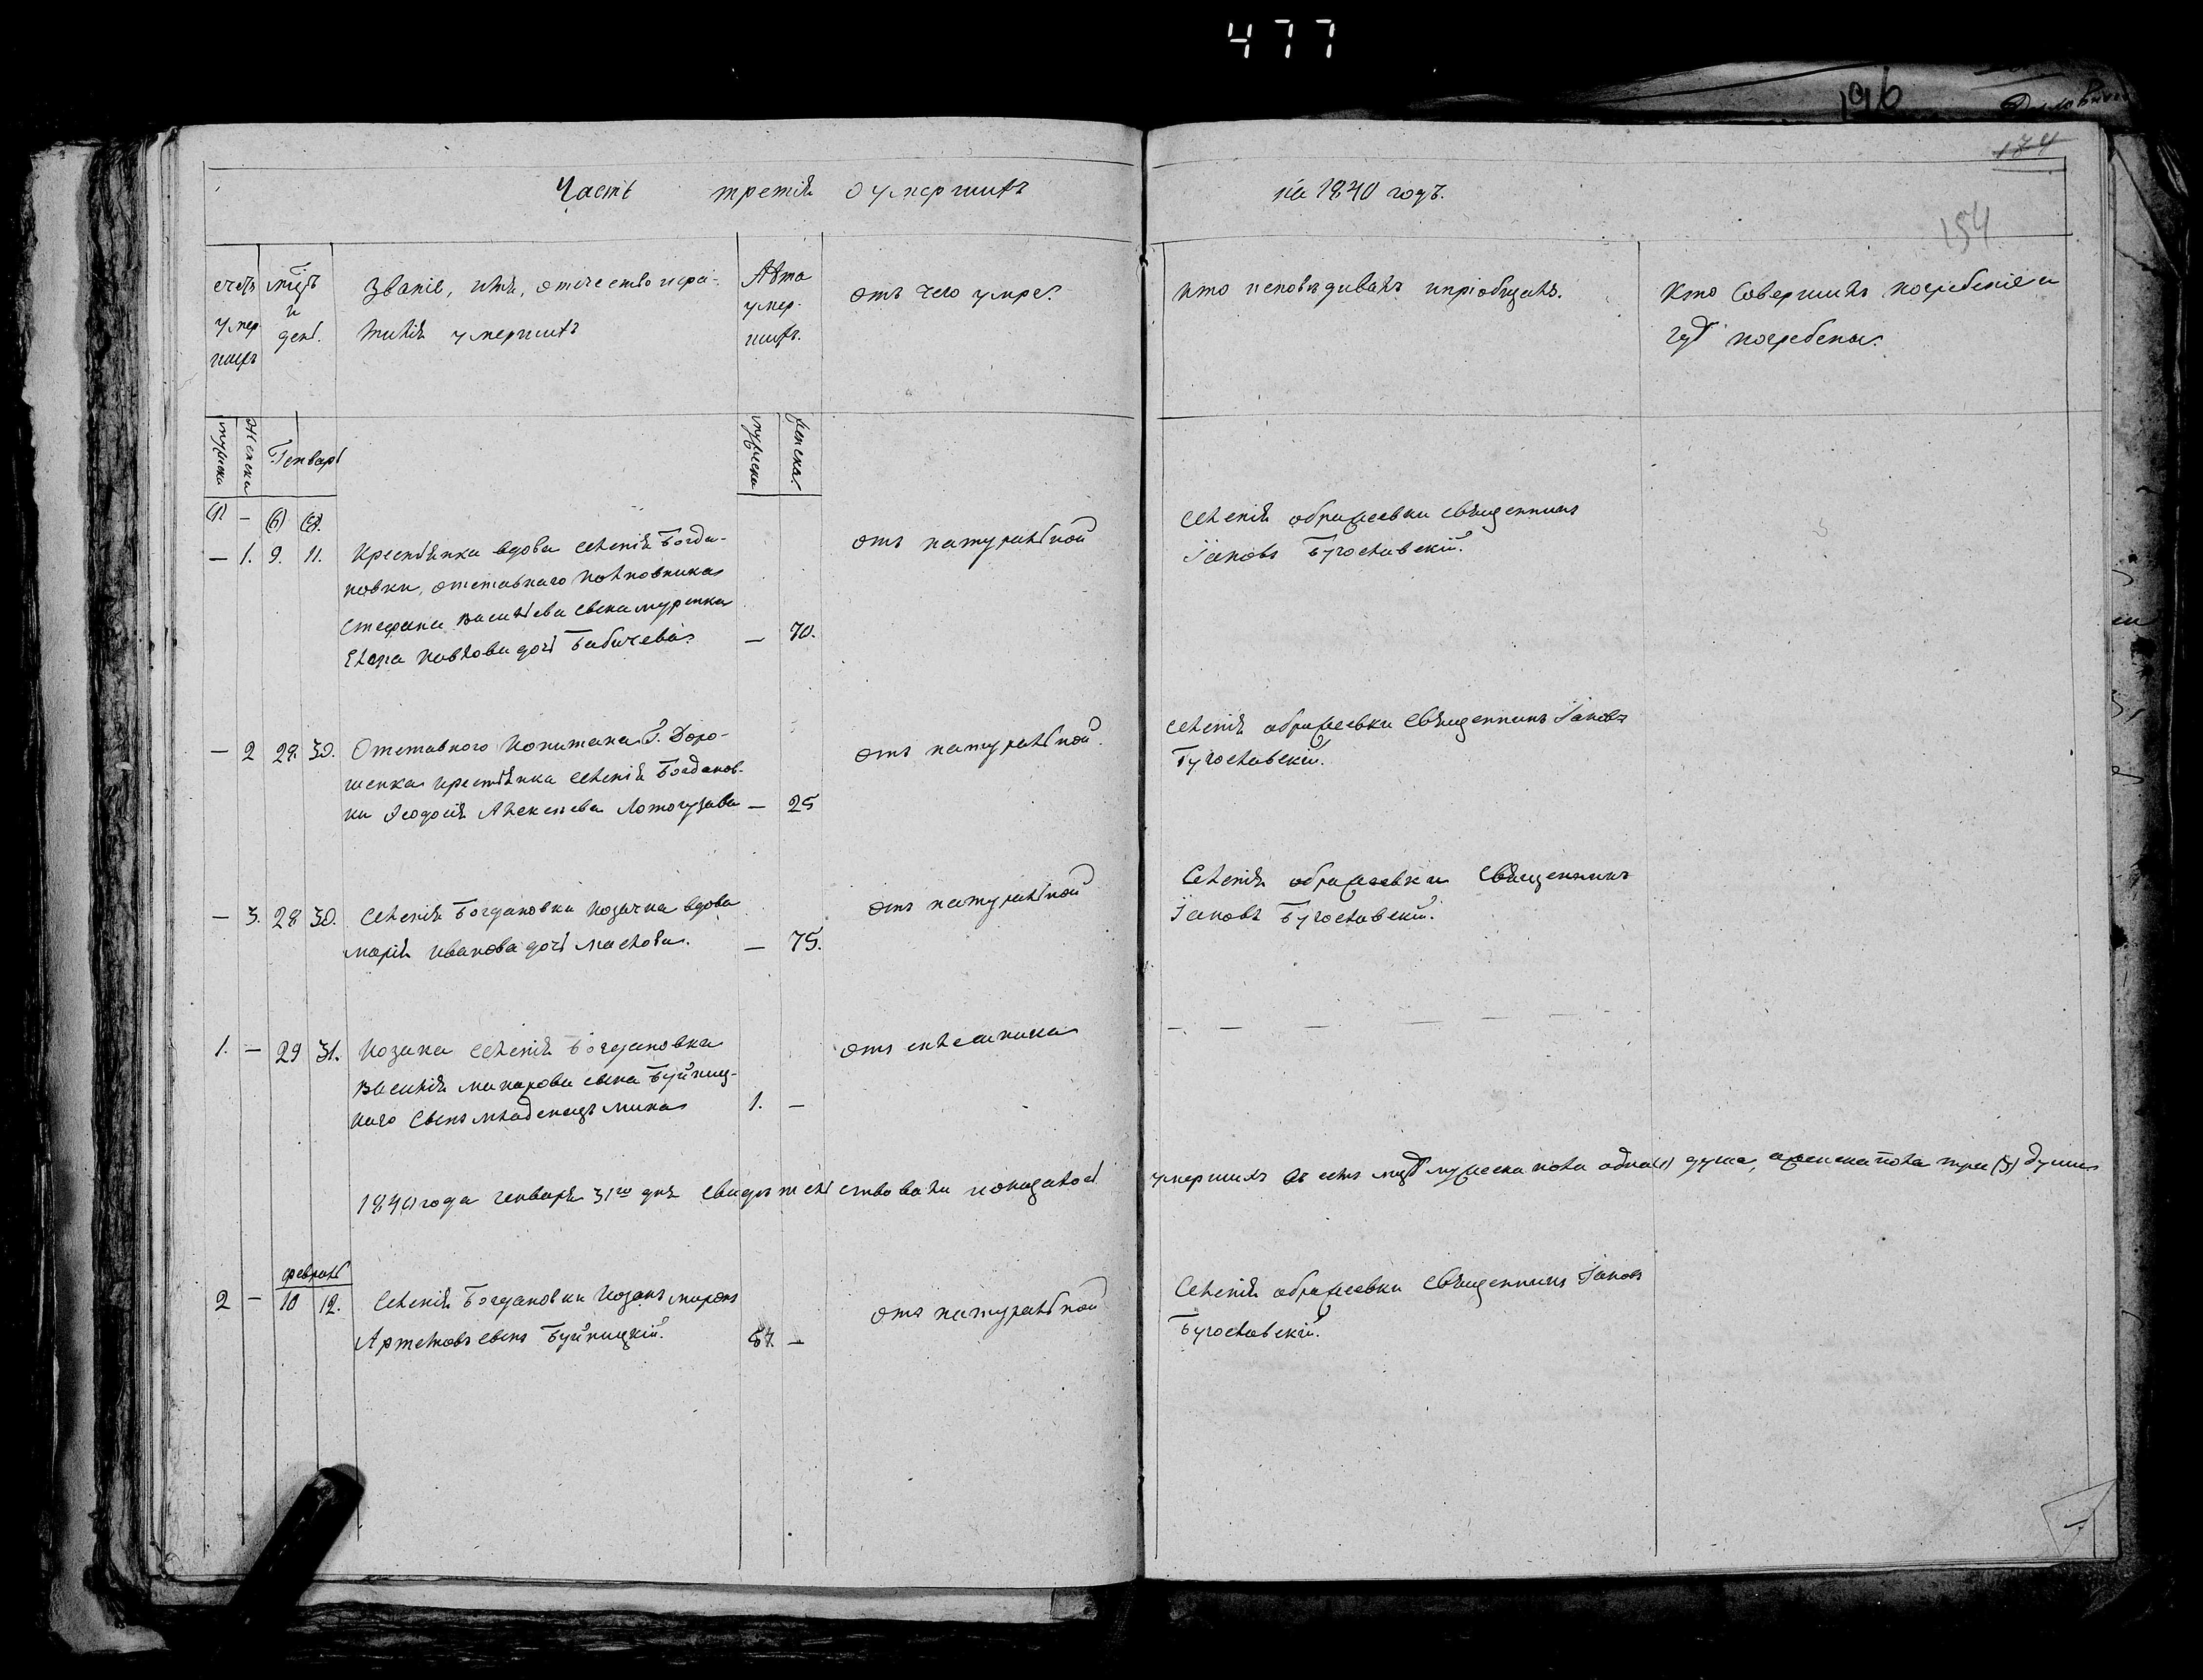 477
196
174
154
Часть третія о умершихъ на 1840 годъ.
счетъ умершихъ
мцъ и день.
Званіе, имя, отчество и фамилія умершихъ
Лѣта умершихъ.
отъ чего умре.
кто исповѣдивалъ и пріобщалъ.
Кто совершилъ погребеніе и
гдѣ погребены.
мужска
женска
Генварь
мужска
женска
— 1. 9. 11. Крестьянка вдова селенія Богдановки, отставнаго полковника
Стефана Васильева сына муренка
Елена Павлова дочь Бабичева.
— 70.
отъ натуральной
селенія ображеевки священникъ
Іаковъ Бугославскій.
— 2 28. 30. Отставного капитана Г. Дорошенка крестьянка селенія Богдановки Феодосія Алексеева Лотогузава
— 25
отъ натуральной.
селенія ображеевки священникъ Іаковъ
Бугославскій.
— 3. 28 30. селенія Богдановки козачка вдова
марія Иванова дочь маслова.
— 75.
отъ натуральной
Селенія ображеевки священникъ
Іаковъ Бугославскій.
1. — 29 31. Козака селенія Богдановки
Василія макарова сына Буйницкаго сынъ младенецъ мина
1. —
— — — — — —
1840 года генваря 31го дня свидѣтельствовали
умершихъ въ семъ мцѣ мужеска пола одна (1) душа, а женска пола три (3) души
февраль
2 — 10 12. Селенія Богдановки козакъ миронъ
Артемовъ сынъ Буйницкій.
57. —
отъ натуральной
Селенія ображеевки священникъ Іаковъ
Бугославскій.